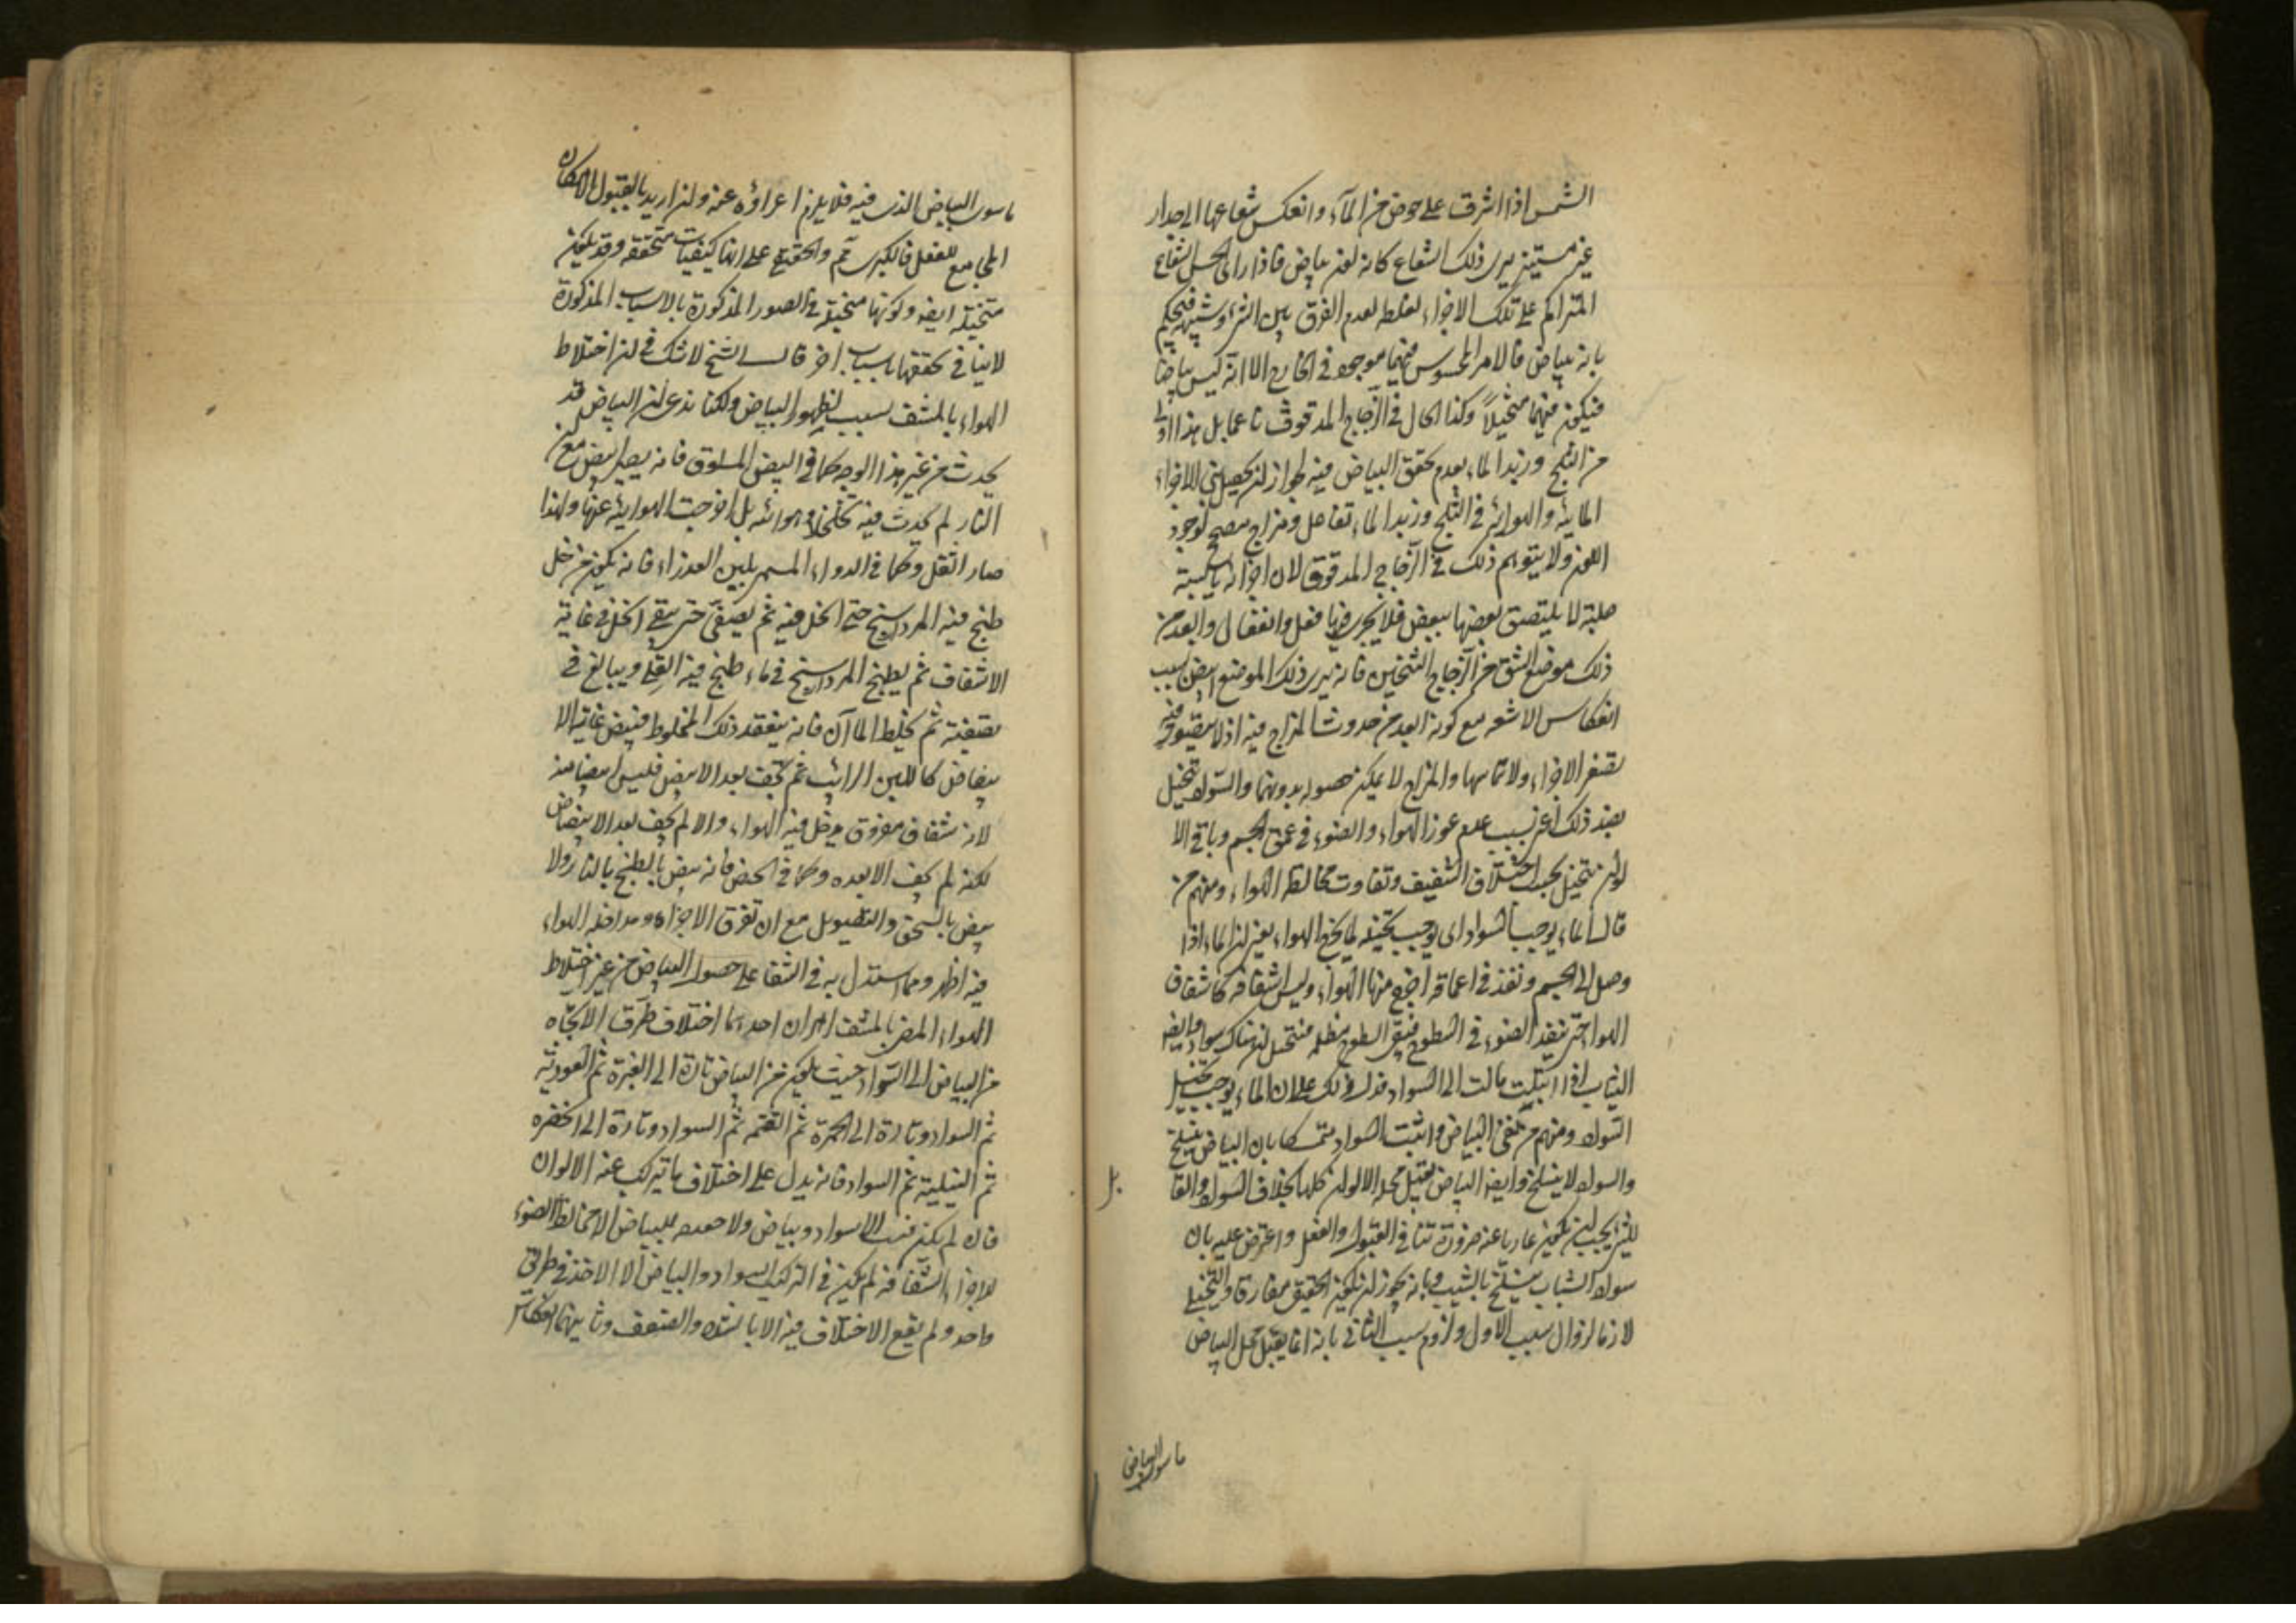 الشمس اذا اشرق على حوض من المآء وانعكس شعاعها الى جدار
غير مستنير يرى ذلك الشعاع كانه لون بياض فاذا رأى الحس الشعاع
المتراكم على تلك الاجزاء لغلطه لعدم الفرق بين الشئ وشبهه فيحكم
بانه بياض فالامر المحسوس فيهما موجود في الخارج الا انه ليس بياضا
فيكون فيهما متخيلاً وكذا الحال في الزجاج المدقوق ناعما بل هذا اولى
من الثلج وزبد الماء بعدم تحقق البياض فيه لجواز ان يحصل بين الاجزاء
المائية والهوائية في الثلج وزبد الماء تفاعل ومزاج مصحح لوجود
اللون ولا يتوهم ذلك في الزجاج المدقوق لان اجزائه يابسة
صلبة لا يلتصق بعضها ببعض فلا يجرى فيها فعل وانفعال وابعد من
ذلك موضع الشق من الزجاج الثخين فانه يرى ذلك الموضع ابيض بسبب
انعكاس الاشعه مع كونه ابعد من حدوث المزاج فيه اذ لا يتصور فيه
تصغر الاجزاء ولا تماسها والمزاج لا يمكن حصوله بدونهما والسواد يتخيل
بضد ذلك اعنى بسبب عدم غور الهواء والضوء في عمق الجسم وباقى الا
لوان تتخيل بحسب اختلاف الشفيف وتفاوت مخالطة الهواء ومنهم من
قال الماء يوجب السواد اى يوجب تخيله لما يخرج الهواء يعنى ان الماء اذا
وصل الى الجسم ونفذ في اعماقه اخرج منها الهواء وليس اشفافه كاشفاف
الهواء حتى ينفذ الضوء في السطوح فيبقى السطوح مظلمه فيتخيل ان هناك سوادا وايضا
الثياب اذا ابتلت مالت الى السواد فدل ذلك على ان الماء يوجب تخيل
السواد ومنهم من نفى البياض واثبت السواد متمسكا بان البياض ينسلخ
والسواد لا ينسلخ وايضا البياض يقبل محله الالوان كلها بخلاف السواد والقابل
للشئ يجب ان يكون عاريا عنه ضرورة تنافى القبول والفعل واعترض عليه بان
سواد الشباب ينسلخ بالشيب وبانه يجوز ان يكون الحقيقى مفارقا والتخيلى
لازما لزوال سبب الاول ولزوم سبب الثانى بانه انما يقبل محل البياض
ماسوى البياض
ماسوى البياض الذى فيه فلا يلزم اعراؤه عنه وان اريد بالقبول الامكان
المجامع للفعل فالكبرى ثم والحق على انها كيفيات متحققه وقد يكون
متخيلة ايضا وكونها متخيلة في الصور المذكورة بالاسباب المذكورة
لا ينافى تحققها باسباب اخر قال الشيخ لا شك في ان اختلاط
الهواء بالمشف سبب لظهور البياض ولكنا ندعى ان البياض قد
يحدث من غير هذا الوجه كما في البيض المسلوق فانه يصير ابيض مع ان
النار لم يحدث فيه تخلخلا وهوائية بل اخرجت الهوائية عنها ولهذا
صار اثقل وكما في الدواء المسمى بلبن العذراء فانه يكون من خل
طبخ فيه المرداسنج حتى انحل فيه ثم يصفى حتى يبقى الخل في غاية
الاشفاف ثم يطبخ المرداسنج في ماء طبخ فيه القلى ويبالغ في
تصفيته ثم يخلط الماآن فانه ينعقد ذلك المخلوط فيبيض غاية الا
بيضاض كاللبن الرائب ثم يجف بعد الابيضاض فليس ابيضاضه
لان شفافا مفرق مدخل فيه الهواء والا لم يجف بعد الابيضاض
لكنه لم يجف الا بعده وكما في الجص فانه يبيض بالطبخ بالنار ولا
يبيض بالسحق والتصويل مع ان تفرق الاجزاء ومداخلة الهواء
فيه اظهر ومما استدل به في الشفا على حصول البياض من غير اختلاط
الهواء المضئ بالمشف امران احدهما اختلاف طرق الاتجاه
من البياض الى السواد حيث يكون من البياض تارة الى الغبرة ثم العودية
ثم السواد وتارة الى الحمرة ثم القتمه ثم السواد وتارة الى الخضره
ثم النيلية ثم السواد فانه يدل على اختلاف ما يتركب عنه الالوان
فان لم يكن الا سواد وبياض ولا حقيقة للبياض الا مخالطة الضوء
للاجزاء الشفافة لم يكن في التركيب السواد والبياض الا الاخذ في طريق
واحد ولم يقع الاختلاف فيه الا بالشدة والضعف وثانيهما انعكاس